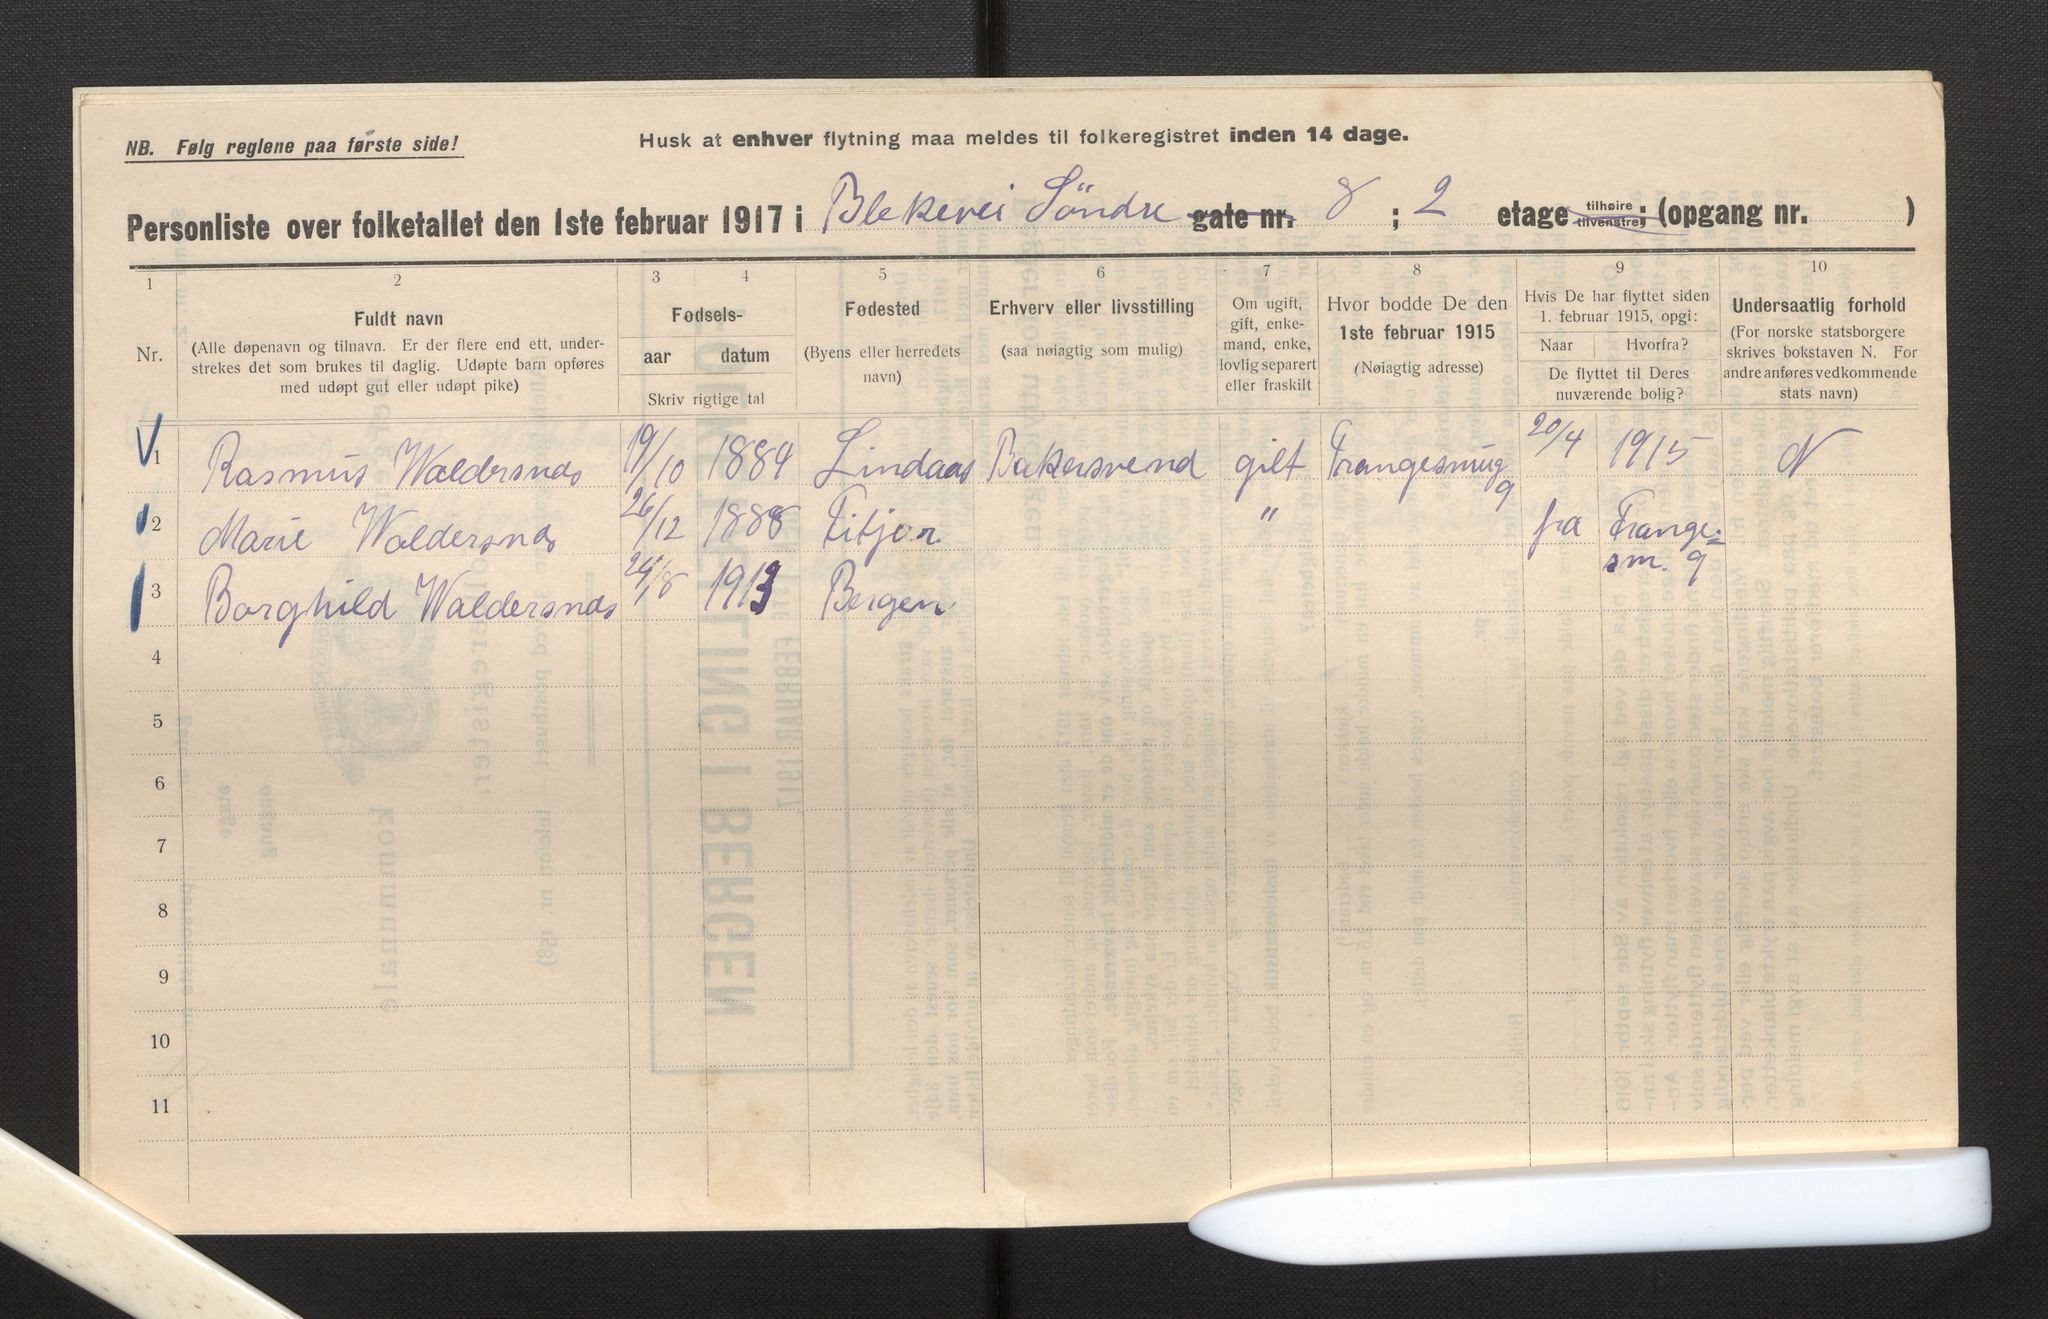 NB. Følg reglene paa første side!
Husk at enhver flytning maa meldes til folkeregistret inden 14 dage.
Personliste over folketallet den 1ste februar 1917 i Blekevei Søndre gate nr. 8 ; 2 etage tilhøire tilvenstre; (opgang nr. )
1 2 3 4 5 6 7 8 9 10
Nr.
Fuldt navn
(Alle døpenavn og tilnavn. Er der flere end ett, under-
strekes det som brukes til daglig. Udøpte barn opføres
med udøpt gut eller udøpt pike)
Fødsels-
aar datum
Skriv rigtige tal
Fødested
(Byens eller herredets
navn)
Erhverv eller livsstilling
(saa nøiagtig som mulig)
Om ugift,
gift, enke-
mand, enke,
lovlig separert
eller fraskilt
Hvor bodde De den
1ste februar 1915
(Nøiagtig adresse)
Hvis De har flyttet siden
1. februar 1915, opgi:
Naar Hvorfra?
De flyttet til Deres
nuværende bolig?
Undersaatlig forhold
(For norske statsborgere
skrives bokstaven N. For
andre anføres vedkommende
stats navn)
1 Rasmus Waldersnæs 19/10 1884 Lindaas Bakersvend gift Frangesmug 9 20/4 1915 N
2 Marie Waldersnæs 26/12 1888 Fitjar " fra Frange=
sm. 9
3 Borghild Waldersnæs 24/8 1913 Bergen
4
5
6
7
8
9
10
11